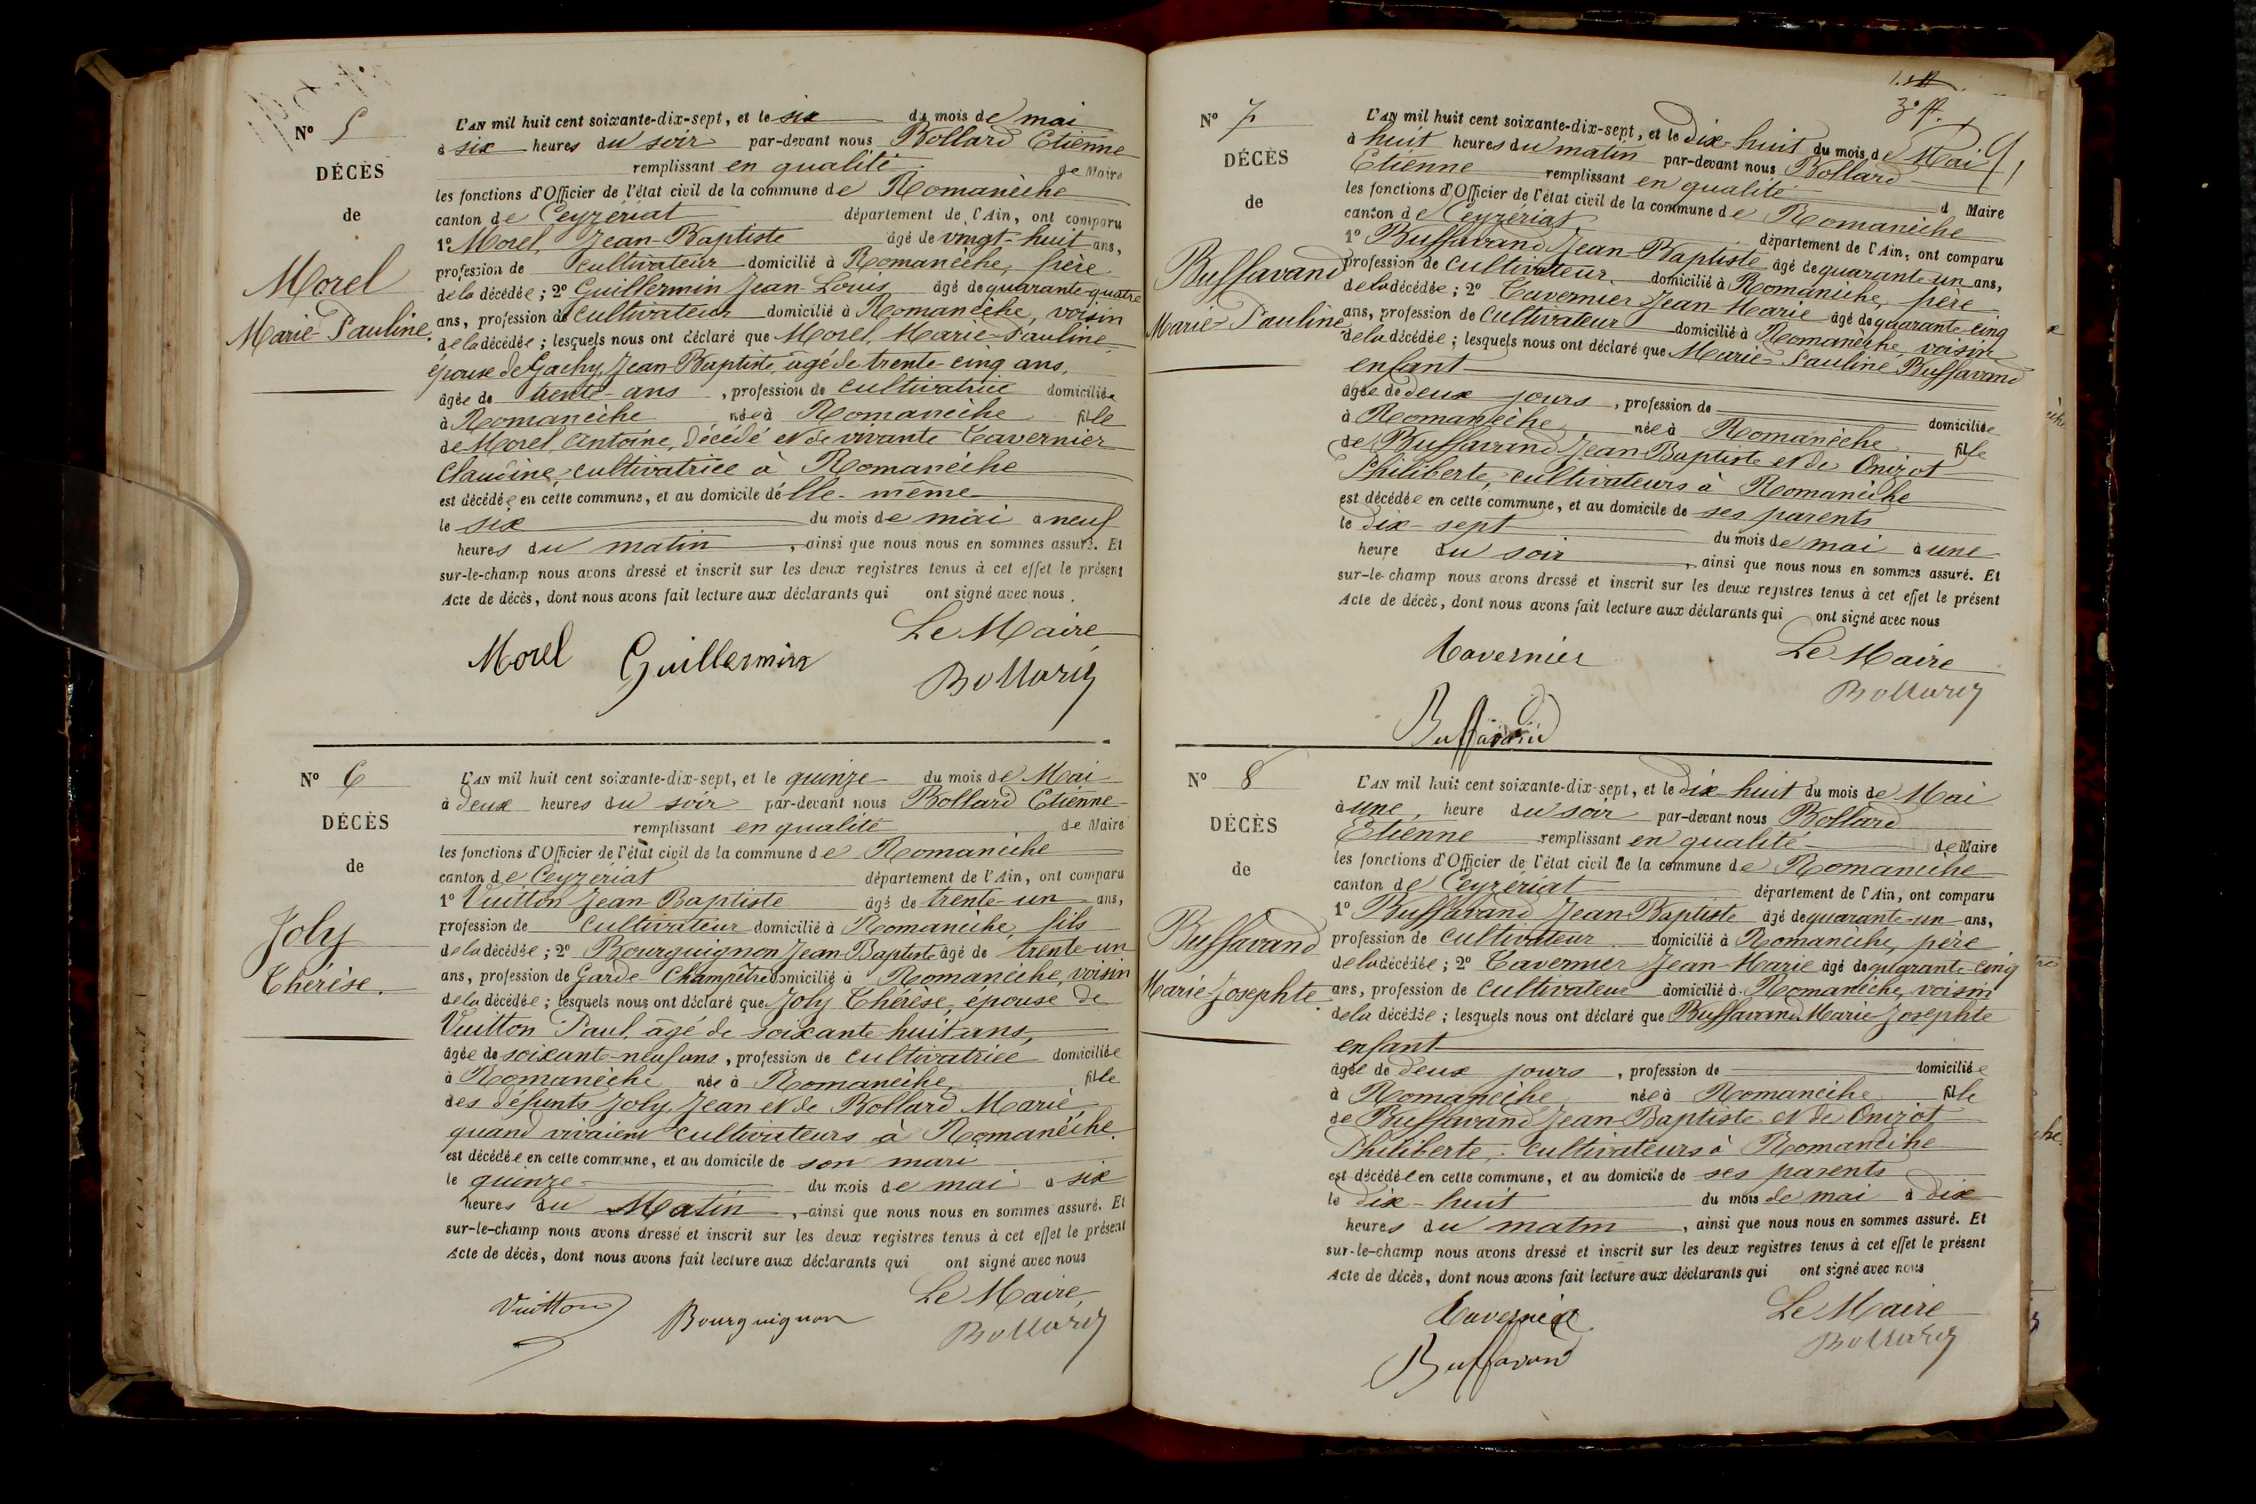 N° 5
DÉCÈS
de
Morel
Marie-Pauline.
L'AN mil huit cent soixante-dix-sept, et le six du mois de mai
à six heures du soir par-devant nous Bollard Etienne
remplissant en qualité de Maire
les fonctions d'Officier de l'état civil de la commune de Romanèche
canton de Ceyzériat département de l'Ain, ont comparu
1° Morel, Jean-Baptiste âgé de vingt-huit ans,
profession de cultivateur domicilié à Romanèche, frère
de la décédée ; 2° Guillermin Jean-Louis âgé de quarante-quatre
ans, profession de cultivateur domicilié à Romanèche, voisin
de la décédée ; lesquels nous ont déclaré que Morel, Marie-Pauline,
épouse de Gachy, Jean-Baptiste, âgé de trente-cinq ans,
âgée de trente-ans , profession de cultivatrice domiciliée
à Romanèche née à Romanèche fille
de Morel, Antoine, décédé et de vivante Tavernier
Claudine, cultivatrice à Romanèche
est décédée en cette commune, et au domicile d'elle-même
le six du mois de mai à neuf
heures du matin , ainsi que nous nous en sommes assuré. Et
sur-le-champ nous avons dressé et inscrit sur les deux registres tenus à cet effet le présent
Acte de décès, dont nous avons fait lecture aux déclarants qui ont signé avec nous.
Le Maire
Morel Guillermin Bollard
N° 6
DÉCÈS
de
Joly
Thérèse.
L'AN mil huit cent soixante-dix-sept, et le quinze du mois de Mai
à deux heures du soir par-devant nous Bollard Etienne
remplissant en qualité de Maire
les fonctions d'Officier de l'état civil de la commune de Romanèche
canton de Ceyzériat département de l'Ain, ont comparu
1° Vuitton Jean-Baptiste âgé de trente-un ans,
profession de cultivateur domicilié à Romanèche, fils
de la décédée ; 2° Bourguignon Jean-Baptiste âgé de trente-un
ans, profession de Garde-Champêtre domicilié à Romanèche, voisin
de la décédée ; lesquels nous ont déclaré que Joly Thérèse, épouse de
Vuitton Paul, âgé de soixante-huit ans,
âgée de soixante-neuf ans , profession de cultivatrice domiciliée
à Romanèche née à Romanèche fille
des défunts Joly, Jean et de Bollard Marie,
quand vivaient cultivateurs à Romanèche.
est décédée en cette commune, et au domicile de son mari
le quinze du mois de mai à six
heures du Matin , ainsi que nous nous en sommes assuré. Et
sur-le-champ nous avons dressé et inscrit sur les deux registres tenus à cet effet le présent
Acte de décès, dont nous avons fait lecture aux déclarants qui ont signé avec nous
Le Maire,
Vuitton Bourguignon Bollard
3e ff.
N° 7
DÉCÈS
de
Buffavand
Marie-Pauline
L'AN mil huit cent soixante-dix-sept, et le dix-huit du mois de Mai
à huit heures du matin par-devant nous Bollard
Etienne remplissant en qualité d Maire
les fonctions d'Officier de l'état civil de la commune de Romanèche
canton de Ceyzériat département de l'Ain, ont comparu
1° Buffavand Jean-Baptiste âgé de quarante-un ans,
profession de cultivateur domicilié à Romanèche, père
de la décédée ; 2° Tavernier Jean-Marie âgé de quarante-cinq
ans, profession de cultivateur domicilié à Romanèche, voisin
de la décédée ; lesquels nous ont déclaré que Marie-Pauline Buffavand
enfant
âgée de deux jours , profession de domiciliée
à Romanèche née à Romanèche fille
de Buffavand Jean-Baptiste et de Onizot
Philiberte, cultivateurs à Romanèche
est décédée en cette commune, et au domicile de ses parents
le dix-sept du mois de mai à une
heure du soir , ainsi que nous nous en sommes assuré. Et
sur-le-champ nous avons dressé et inscrit sur les deux registres tenus à cet effet le présent
Acte de décès, dont nous avons fait lecture aux déclarants qui ont signé avec nous
Tavernier Le Maire
Bollard
Buffavand
N° 8
DÉCÈS
de
Buffavand
Marie-Josephte.
L'AN mil huit cent soixante-dix-sept, et le dix-huit du mois de Mai
à une heure du soir par-devant nous Bollard
Etienne remplissant en qualité de Maire
les fonctions d'Officier de l'état civil de la commune de Romanèche
canton de Ceyzériat département de l'Ain, ont comparu
1° Buffavand Jean-Baptiste âgé de quarante-un ans,
profession de cultivateur domicilié à Romanèche, père
de la décédée ; 2° Tavernier Jean-Marie âgé de quarante-cinq
ans, profession de cultivateur domicilié à Romanèche, voisin
de la décédée ; lesquels nous ont déclaré que Buffavand Marie Josephte
enfant
âgée de deux jours , profession de domiciliée
à Romanèche née à Romanèche fille
de Buffavand Jean-Baptiste et de Onizot
Philiberte, cultivateurs à Romanèche
est décédée en cette commune, et au domicile de ses parents
le dix-huit du mois de mai à dix
heures du matin , ainsi que nous nous en sommes assuré. Et
sur-le-champ nous avons dressé et inscrit sur les deux registres tenus à cet effet le présent
Acte de décès, dont nous avons fait lecture aux déclarants qui ont signé avec nous
Tavernier Le Maire
Bollard
Buffavand